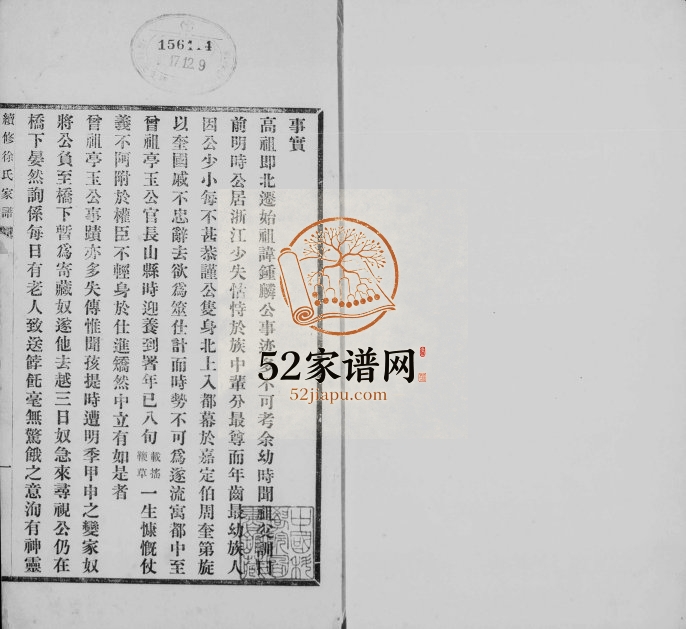 1561.4
17.12.9
事實
高祖即北遷始祖諱鍾麟公事迹 不可考余幼時聞祖父訓曰
前明時公居浙江少失怙恃於族中輩分最尊而年齒最幼族人
因公少小每不甚恭謹公隻身北上入都幕於嘉定伯周奎第旋
以奎國戚不忠辭去欲爲筮仕計而時勢不可爲遂流寓都中至
曾祖亭玉公官長山縣時迎養到署年已八旬載搢頼草一生慷慨仗
義不阿附於權臣不輕身於仕進矯然中立有如是者
曾祖亭玉公事蹟亦多失傳惟聞孩提時遭明季甲申之變家奴
將公負至橋下暫爲寄藏奴遂他去越三日奴急來尋視公仍在
橋下晏然詢係每日有老人致送餑飥毫無驚餓之意洵有神靈
續修徐氏家譜
52家谱网
52jiapu.com